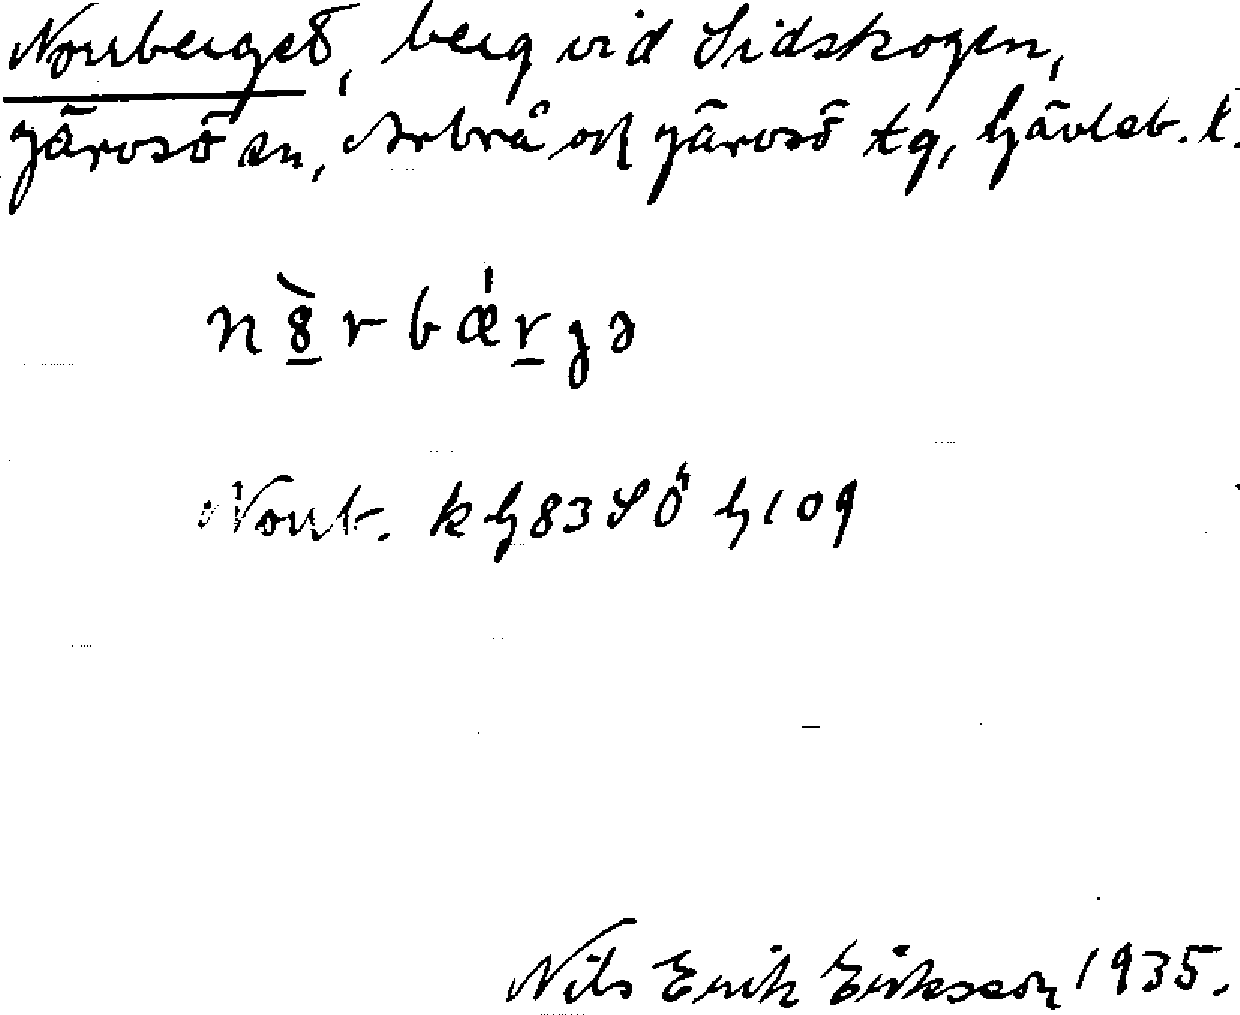 Norrberget, berg vid Sidskogen,
Järvsö sn, Arbrå och Järvsö tg, Gävleb. l.
n ȣ̀ r b ǽ r g ə
Norrb. k G83SÖ h109
Nils Erik Eriksson 1935.